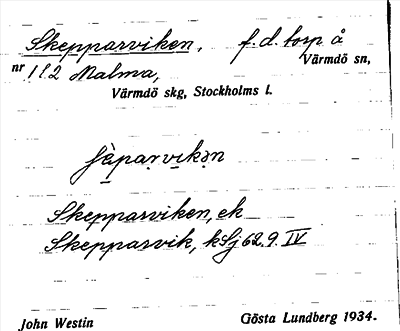 Skepparviken, f.d. torp å
nr 1 l. 2 Malma, Värmdö sn,
Värmdö skg, Stockholms l.
ʃèparvikən
Skepparviken, ek
Skepparvik, kSj 62.9. IV
John Westin Gösta Lundberg 1934.